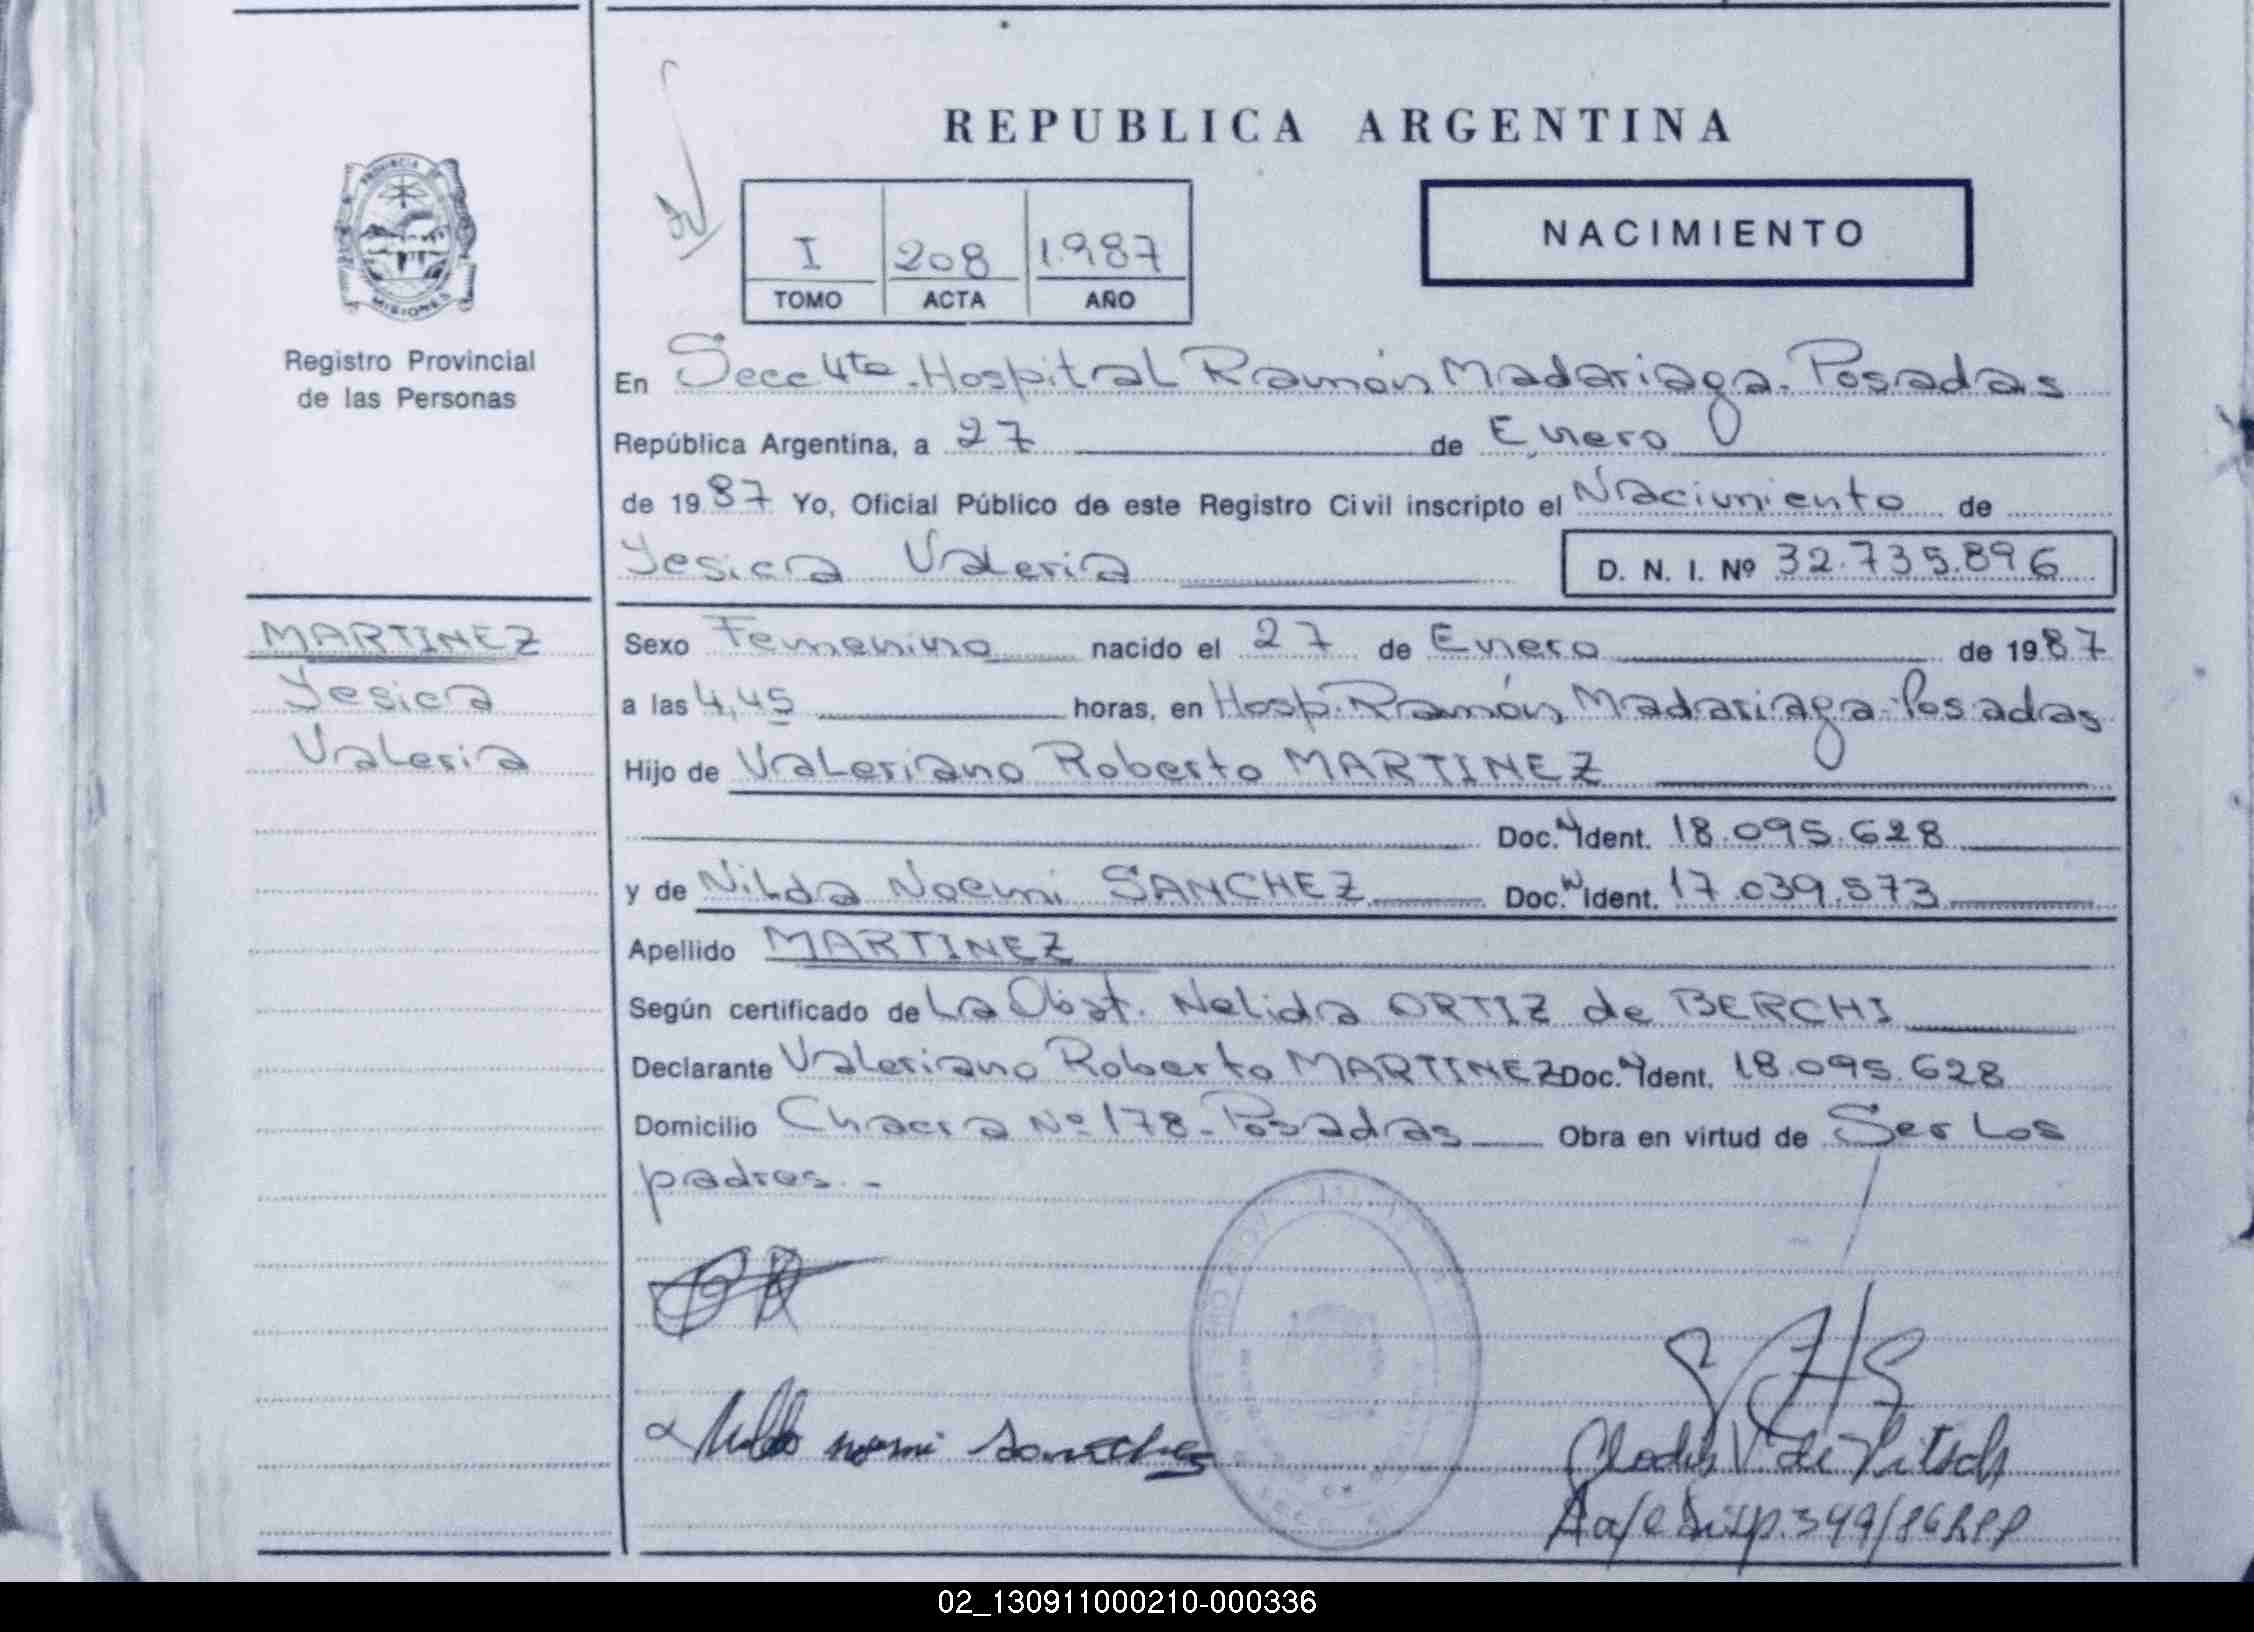 REPUBLICA ARGENTINA
NACIMIENTO
I 208 1.987
TOMO ACTA AÑO
PROVINCIA DE
MISIONES
Registro Provincial
de las Personas
En Secc 4ta. Hospital Ramón Madariaga. Posadas
República Argentina, a 27 de Enero
de 1987 Yo, Oficial Público de este Registro Civil inscripto el Nacimiento de
Yesica Valeria D. N. I. Nº 32.735.896
MARTINEZ
Yesica
Valeria
Sexo Femenino nacido el 27 de Enero de 1987
a las 4,45 horas, en Hosp. Ramón Madariaga-Posadas
Hijo de Valeriano Roberto MARTINEZ
Doc. N Ident. 18.095.628
y de Nilda Noemi SANCHEZ Doc. N Ident. 17.039.573
Apellido MARTINEZ
Según certificado de La Obst. Nelida ORTIZ de BERCHI
Declarante Valeriano Roberto MARTINEZ Doc. N Ident. 18.095.628
Domicilio Chacra Nº 178-Posadas Obra en virtud de Ser Los
padres.-
Nilda noemi Sanchez
Gladis V. de
Disp. 349/86 R.P.P
02_130911000210-000336